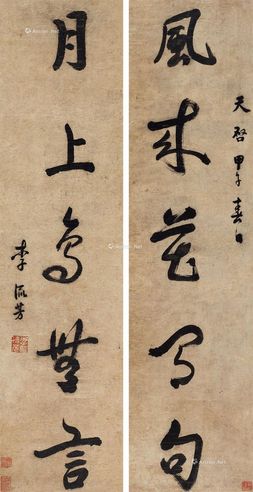 天啓甲子春日
風來花句
月上鳥無言
李流芳